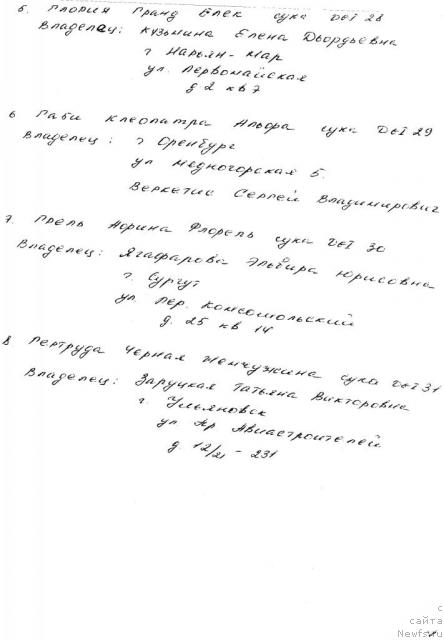 5. Глория Гранд Блек сука DGT 28
Владелец: Кузьмина Елена Дьордьевна
г Нарьян-Мар
ул. Первомайская
д 2 кв 7
6 Габи Клеопатра Аьфра сука DGT 29
Владелец: г Оренбург
ул Медногорская 5.
Веркетис Сергей Владимирович
7. Грель Норина Флорель сука DGT 30
Владелец: Ягафарова Эльвира Юрисовна
г. Сургут
ул. Пер. Комсомольский
д. 25 кв 14
8 Гертруда Черная Жемчужина сука DGT 31
Владелец: Заруцкая Татьяна Викторовна
г. Ульяновск
ул. Пр Авиастроителей
д 12/21 - 231
с
сайта
Newf.ru